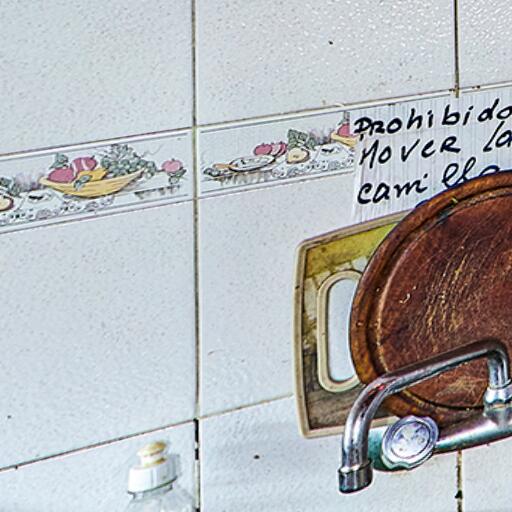 Prohibido
Mover la
camilla